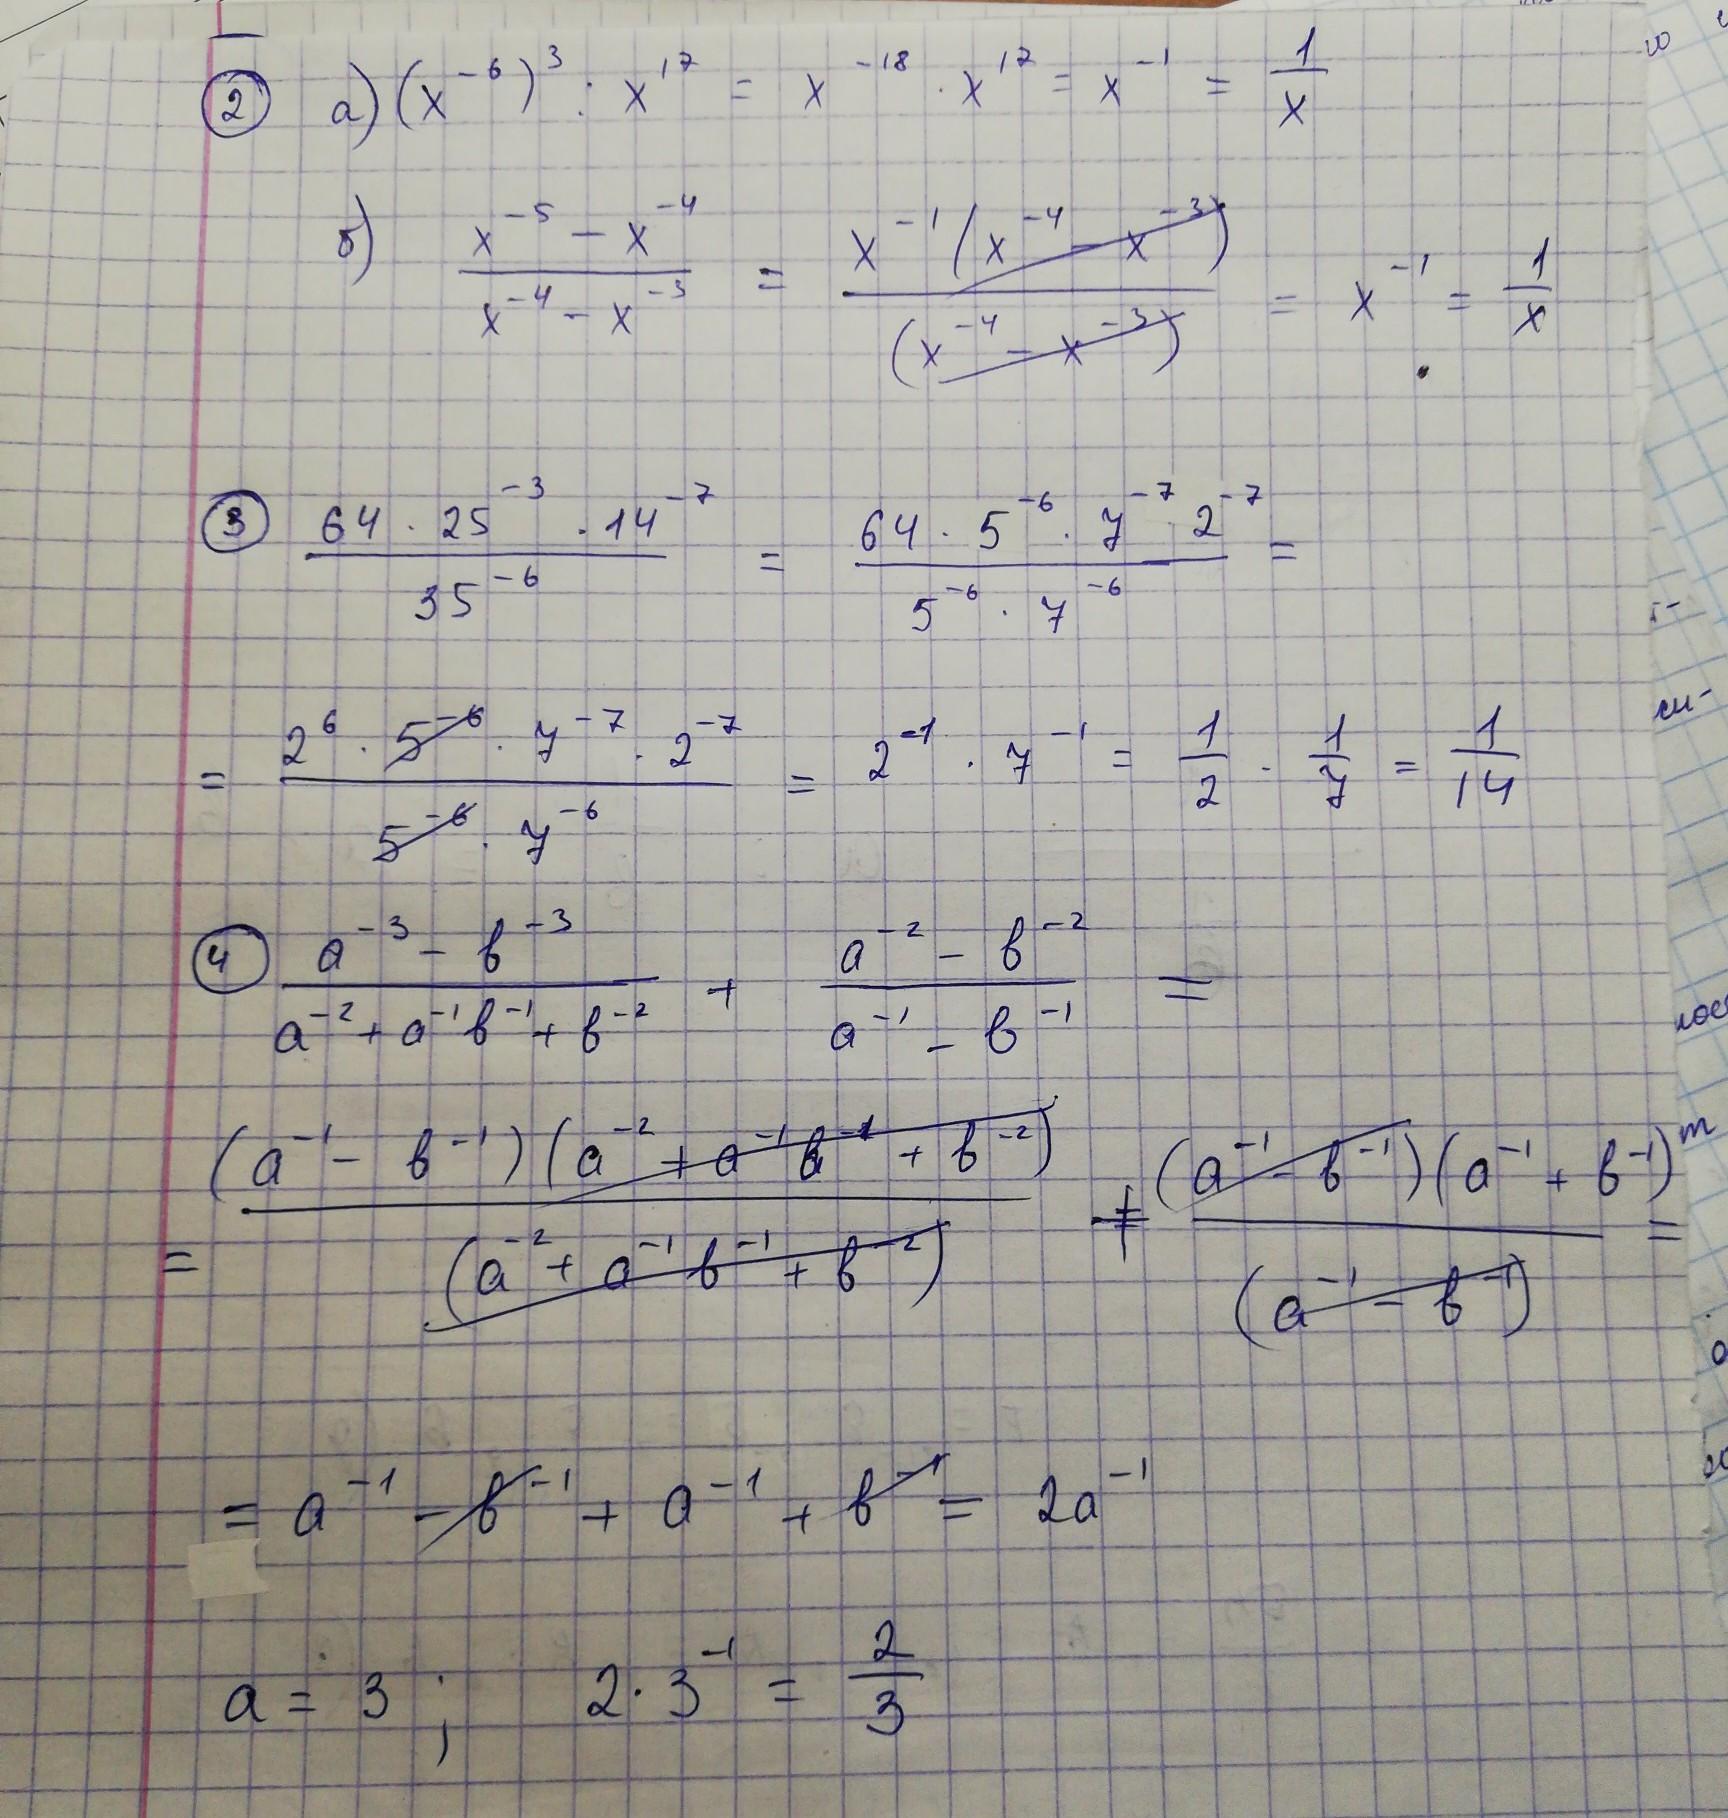 ② а) (x⁻⁶)³ : x¹⁷ = x⁻¹⁸ · x¹⁷ = x⁻¹ = 1/x
б) (x⁻⁵ − x⁻⁴)/(x⁻⁴ − x⁻³) = x⁻¹(x⁻⁴ − x⁻³)/(x⁻⁴ − x⁻³) = x⁻¹ = 1/x
③ (64 · 25⁻³ · 14⁻⁷)/35⁻⁶ = (64 · 5⁻⁶ · 7⁻⁷ · 2⁻⁷)/(5⁻⁶ · 7⁻⁶) =
= (2⁶ · 5⁻⁶ · 7⁻⁷ · 2⁻⁷)/(5⁻⁶ · 7⁻⁶) = 2⁻¹ · 7⁻¹ = 1/2 · 1/7 = 1/14
④ (a⁻³ − b⁻³)/(a⁻² + a⁻¹b⁻¹ + b⁻²) + (a⁻² − b⁻²)/(a⁻¹ − b⁻¹) =
= (a⁻¹ − b⁻¹)(a⁻² + a⁻¹b⁻¹ + b⁻²)/(a⁻² + a⁻¹b⁻¹ + b⁻²) + (a⁻¹ − b⁻¹)(a⁻¹ + b⁻¹)/(a⁻¹ − b⁻¹) =
= a⁻¹ − b⁻¹ + a⁻¹ + b⁻¹ = 2a⁻¹
a = 3 ; 2 · 3⁻¹ = 2/3